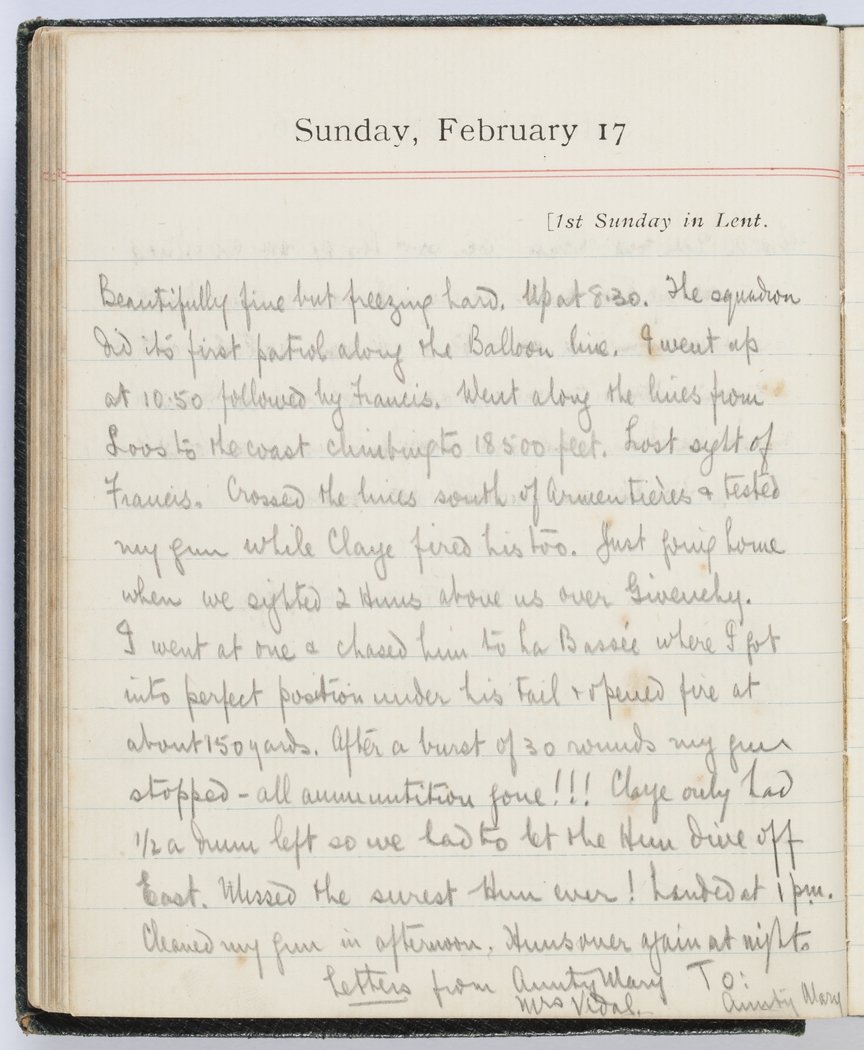 Sunday, February 17
[1st Sunday in Lent.
Beautifully fine but freezing hard. Up at 8.30. The squadron
did it's first patrol along the Balloon line. I went up
at 10.50 followed by Francis. Went along the lines from
Loos to the coast climbing to 18500 feet. Lost sight of
Francis. Crossed the lines south of Armentières & tested
my gun while Claye fired his too. Just going home
when we sighted 2 Huns above us over Givenchy.
I went at one & chased him to La Bassée where I got
into perfect position under his tail & opened fire at
about 150 yards. After a burst of 30 rounds my gun
stopped - all ammuntition gone!!! Claye only had
1/2 a drum left so we had to let the Hun dive off
East. Missed the surest Hun ever! Landed at 1 p.m.
Cleaned my gun in afternoon. Huns over again at night.
Letters from Aunty Mary To:
Mrs Vidal. Aunty Mary